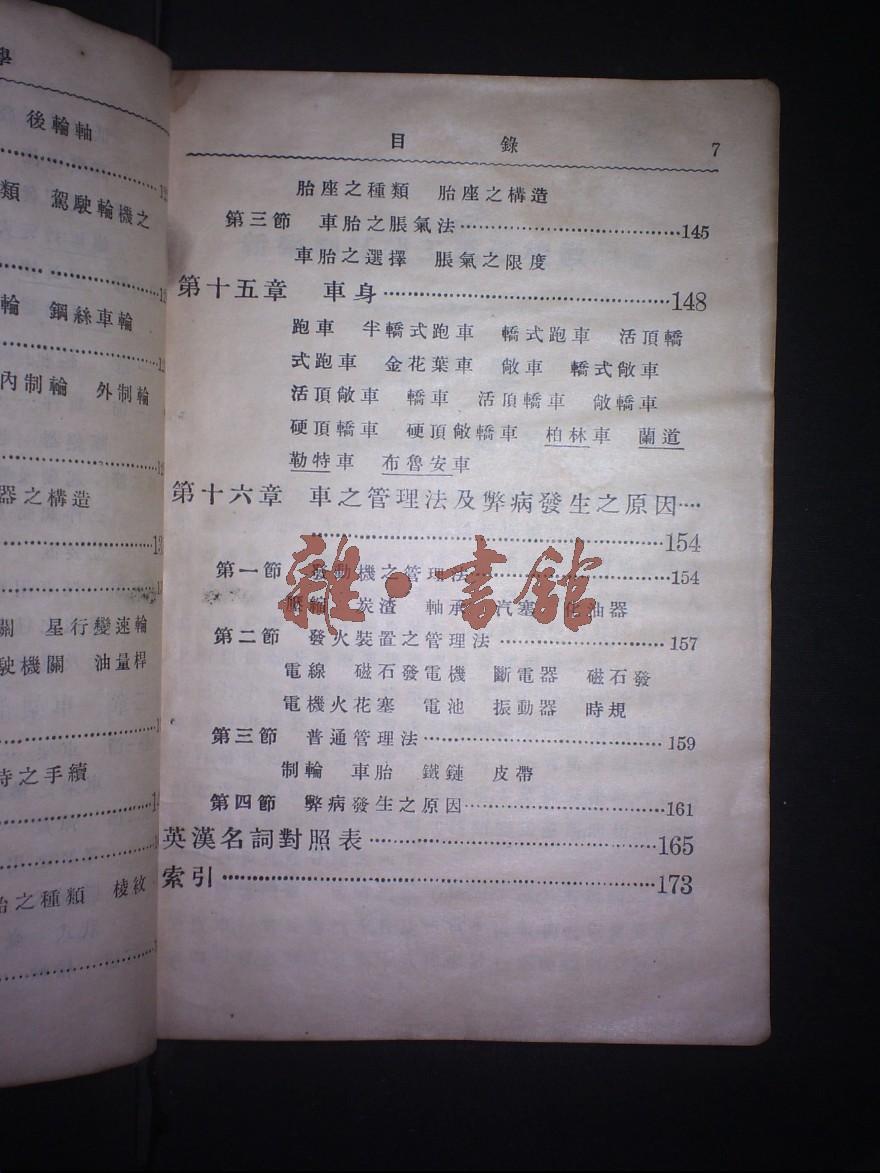 學
後輪軸
類 駕駛輪機之
輪 鋼絲車輪
內制輪 外制輪
器之構造
關 星行變速輪
駛機關 油量桿
持之手續
胎之種類 棱紋
目 錄 7
胎座之種類 胎座之構造
第三節 車胎之脹氣法 145
車胎之選擇 脹氣之限度
第十五章 車身 148
跑車 半轎式跑車 轎式跑車 活頂轎
式跑車 金花葉車 敞車 轎式敞車
活頂敞車 轎車 活頂轎車 敞轎車
硬頂轎車 硬頂敞轎車 柏林車 蘭道
勒特車 布魯安車
第十六章 車之管理法及弊病發生之原因
154
第一節 發動機之管理法 154
壓縮 炭渣 軸承 汽塞 化油器
第二節 發火裝置之管理法 157
電線 磁石發電機 斷電器 磁石發
電機火花塞 電池 振動器 時規
第三節 普通管理法 159
制輪 車胎 鐵鏈 皮帶
第四節 弊病發生之原因 161
英漢名詞對照表 165
索引 173
雜·書館